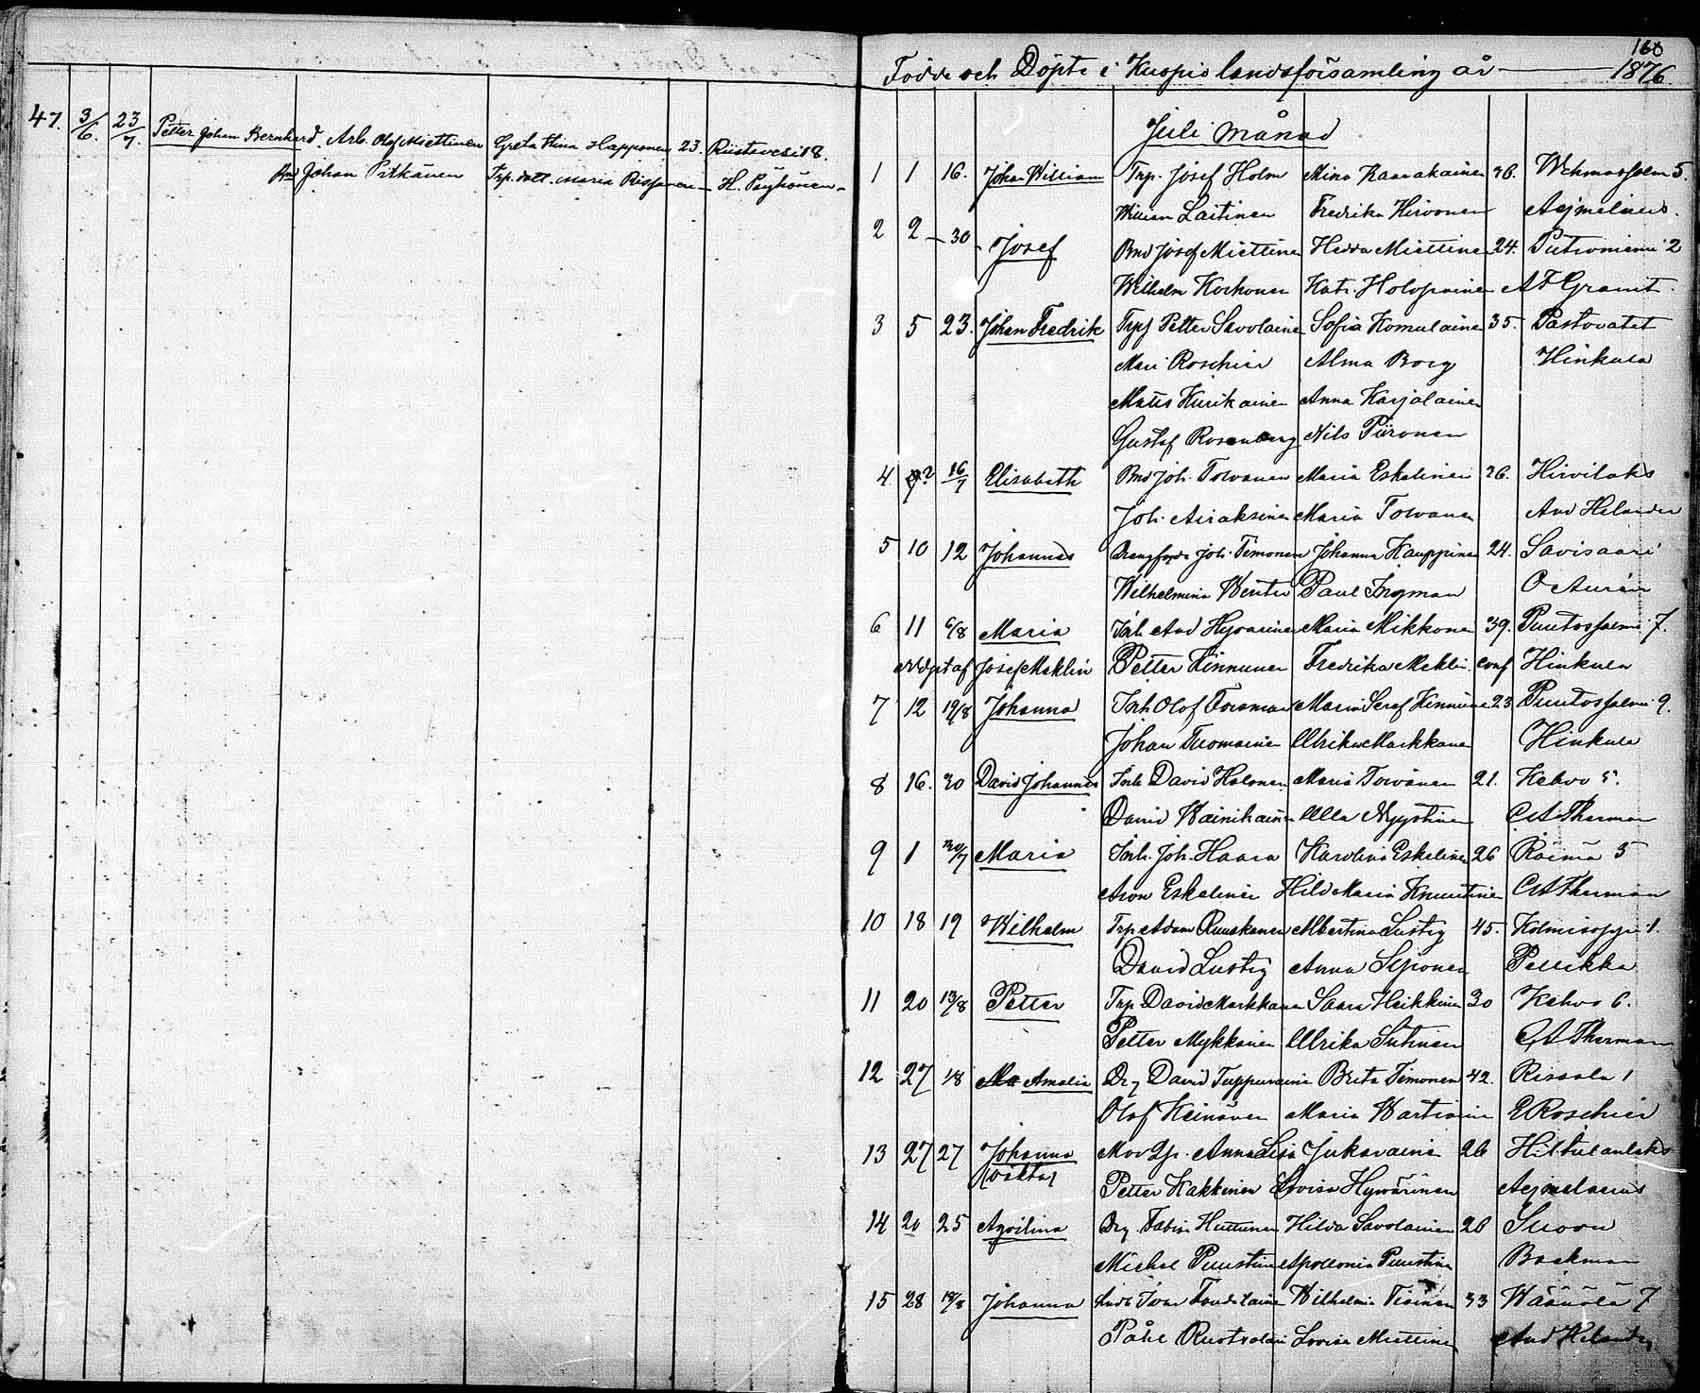 47. 3/6. 23/7. Petter Johan Bernhard. Arb. Olof Miettinen Greta Stina Happonen 23. Riistavesi 18.
Bnd Johan Pitkänen Trp. dott. Maria Rissanen H. Pöyhönen
160
Födde och Döpte i Kuopio landsförsamling år 1876.
Juli månad
1 1 16. Johan William Trp. Josef Holm Mina Kaarakainen 36. Wehmassalmi 5.
William Laitinen Fredrika Hirvonen Aejmelaeus.
2 2 30 Josef Bnd Josef Miettinen Hedda Miettinen 24. Putroniemi 2
Wilhelm Korhonen Katr. Holopainen A F Granit
3 5 23. Johan Fredrik Petter Savolainen Sofia Komulainen 35. Pastoratet
Mari Roschier Alma Borg Hinkula
Matts Anna Karjalainen
Gustaf Rosenberg Nils Piironen
4 7? 16/7 Elisabeth Bnd Joh. Tolvanen Maria Eskelinen 36. Hirvilaks
Joh. Airaksinen Maria Tolvanen And Helander
5 10 12 Johannes Joh. Timonen Johanna Kauppinen 24. Savisaari
Wilhelmina Paul Ingman O Aurén
6 11 6/8 Maria Inh. And Hyvärinen Maria Mikkonen 39. Puutossalmi 7.
Nddpt af Josef Meklin Petter Kinnunen Fredrika Meklin conf Hinkula
7 12 19/8 Johanna Inh. Olof Forsman Maria Seraf Kinnunen 23 Puutossalmi 9.
Johan Tuomainen Ulrika Markkanen Hinkula
8 16. 30 David Johannes Inh David Halonen Maria Toivanen 21. Kehvo 5.
David Väinikäinen Ulla Nyyssönen C A Therman
9 1 30/7 Maria Inh. Joh. Haara Karolina Eskelinen 26 Räimä 5
Aron Eskelinen Hild Maria Knuutinen C A Therman
10 18 19 Wilhelm Trp Adam Ruuskanen Albertina Lustig 45. Kolmisoppi 1.
David Lustig Anna Seponen Pellikka
11 20 13/8 Petter Trp David Markkanen Saara Heikkinen 30 Kehvo 6.
Petter Mykkänen Ulrika Sutinen C A Therman
12 27 1/8 Amalia Drg David Tuppurainen Brita Timonen 42. Rissala 1
Olof Keinänen Maria Wartiainen E Roschier
13 27 27 Johanna Anna Lisa Jukarainen 26 Hiltulanlaks
(oäkta) Petter Kakkinen Lovisa Hyvärinen Aejmelaeus
14 20 25 Aqvilina Drg Fabian Huttunen Hilda Savolainen 26 Suovu
Michel Puustinen Apollonia Puustinen Backman
15 28 13/8 Johanna Wilhelmina Tiainen 33 Wäänölä 7
Påhl Ruotsalain Lovisa Miettinen And Helander